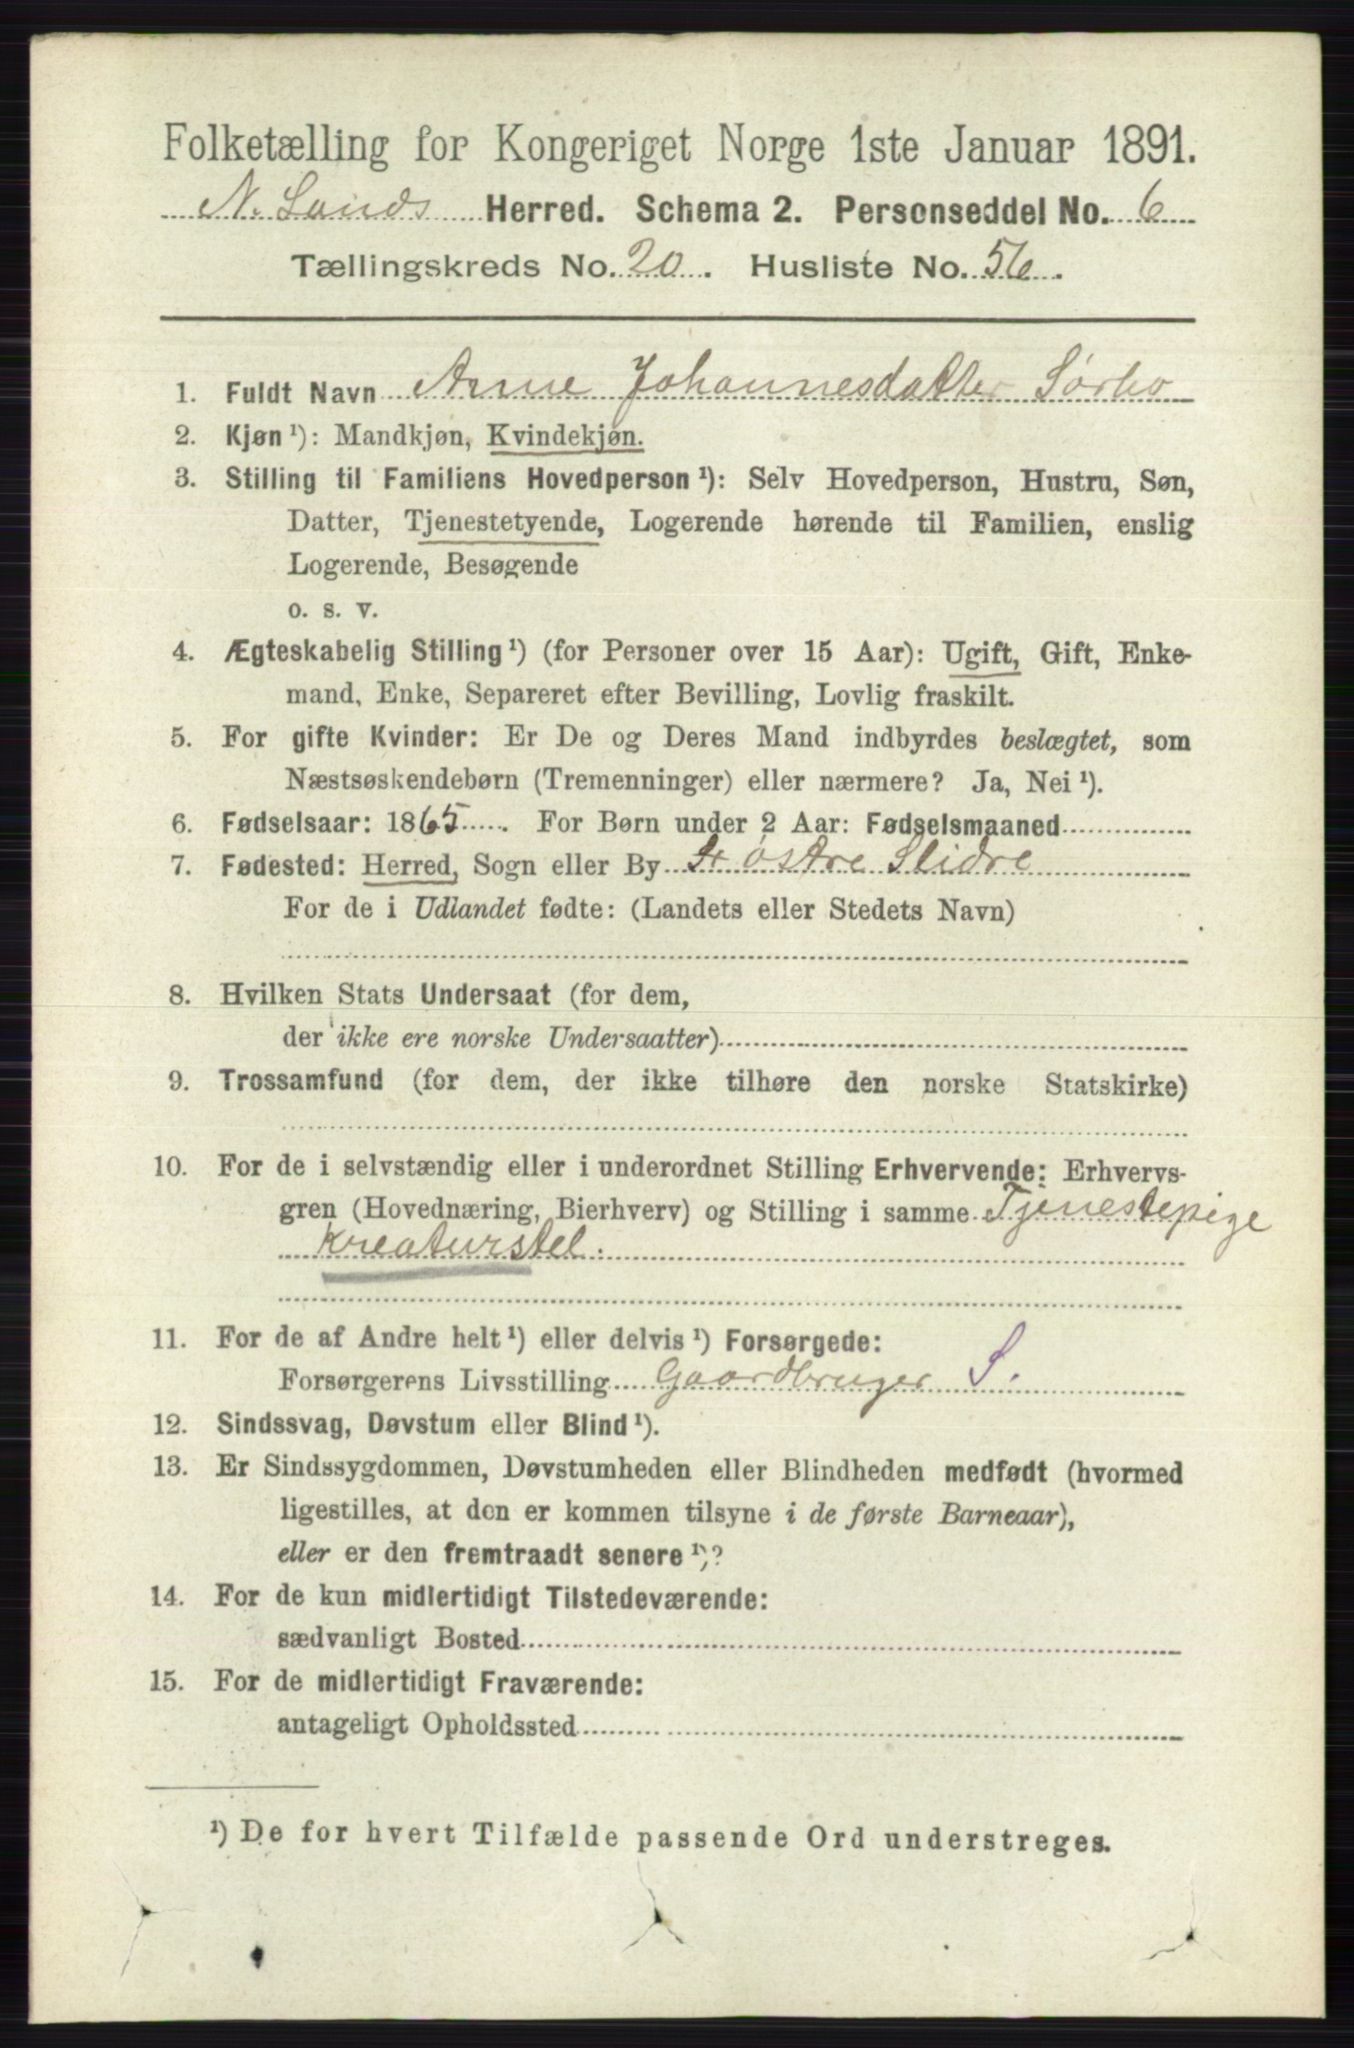 Folketælling for Kongeriget Norge 1ste Januar 1891.
N. Lands Herred. Schema 2. Personseddel No. 6
Tællingskreds No. 20. Husliste No. 56.
1. Fuldt Navn Anne Johannesdatter Sørbo
2. Kjøn ¹): Mandkjøn, Kvindekjøn.
3. Stilling til Familiens Hovedperson ¹): Selv Hovedperson, Hustru, Søn,
Datter, Tjenestetyende, Logerende hørende til Familien, enslig
Logerende, Besøgende
o. s. v.
4. Ægteskabelig Stilling ¹) (for Personer over 15 Aar): Ugift, Gift, Enke-
mand, Enke, Separeret efter Bevilling, Lovlig fraskilt.
5. For gifte Kvinder: Er De og Deres Mand indbyrdes beslægtet, som
Næstsøskendebørn (Tremenninger) eller nærmere? Ja, Nei ¹).
6. Fødselsaar: 1865. For Børn under 2 Aar: Fødselsmaaned
7. Fødested: Herred, Sogn eller By østre Slidre
For de i Udlandet fødte: (Landets eller Stedets Navn)
8. Hvilken Stats Undersaat (for dem,
der ikke ere norske Undersaatter)
9. Trossamfund (for dem, der ikke tilhøre den norske Statskirke)
10. For de i selvstændig eller i underordnet Stilling Erhvervende: Erhvervs-
gren (Hovednæring, Bierhverv) og Stilling i samme Tjenestepige
Kreaturstel.
11. For de af Andre helt ¹) eller delvis ¹) Forsørgede:
Forsørgerens Livsstilling Gaardbruger S.
12. Sindssvag, Døvstum eller Blind ¹).
13. Er Sindssygdommen, Døvstumheden eller Blindheden medfødt (hvormed
ligestilles, at den er kommen tilsyne i de første Barneaar),
eller er den fremtraadt senere ¹)?
14. For de kun midlertidigt Tilstedeværende:
sædvanligt Bosted
15. For de midlertidigt Fraværende:
antageligt Opholdssted
¹) De for hvert Tilfælde passende Ord understreges.